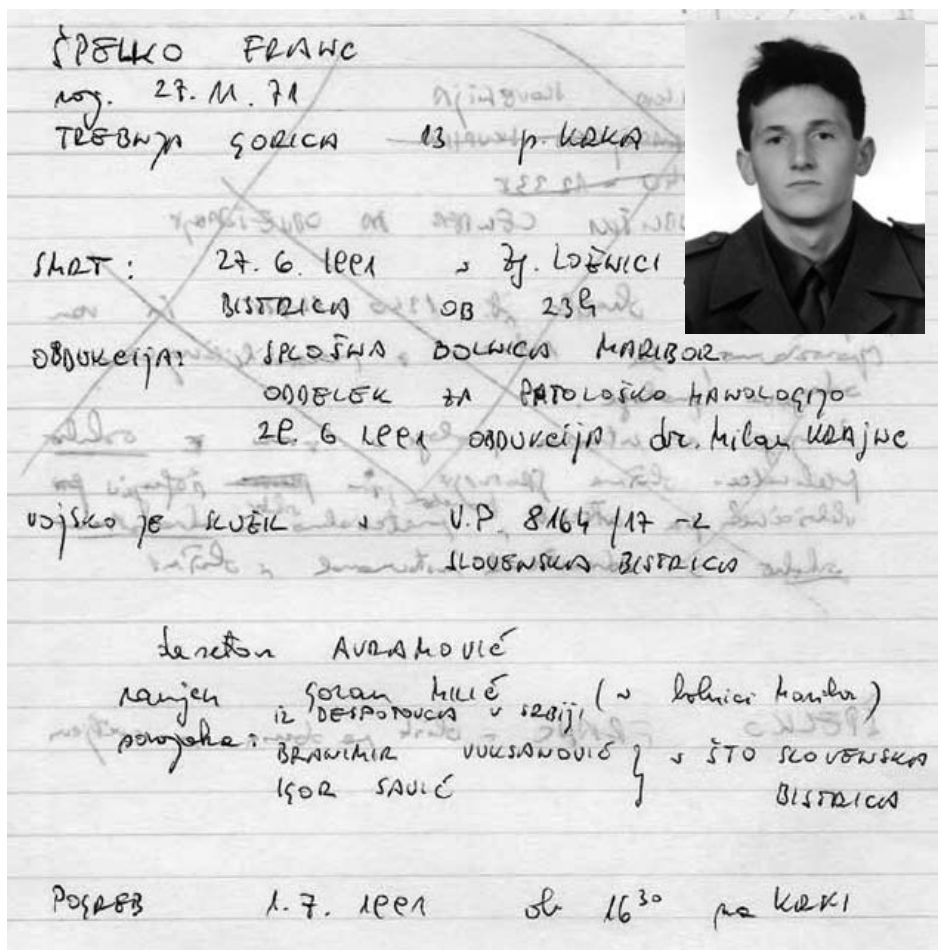 ŠPELKO FRANC
roj. 27. 11. 71
TREBNJA GORICA 13 p. KRKA
SMRT: 27. 6. 1991 v Zg. LOŽNICI
BISTRICA OB 23h
OBDUKCIJA: SPLOŠNA BOLNICA MARIBOR
ODDELEK ZA PATOLOŠKO
28. 6 1991 OBDUKCIJA dr. Milan KRAJNC
VOJSKO JE SLUŽIL v V.P. 8164/17-2
SLOVENSKA BISTRICA
desetar AVRAMOVIĆ
ranjen Goran MILIĆ (v bolnici Maribor)
IZ DESPOTOVCA V SRBIJI
vojaka: BRANIMIR VUKSANOVIĆ } v ŠTO SLOVENSKA
IGOR SAVIĆ BISTRICA
POGREB 1. 7. 1991 ob 16 30 na KRKI